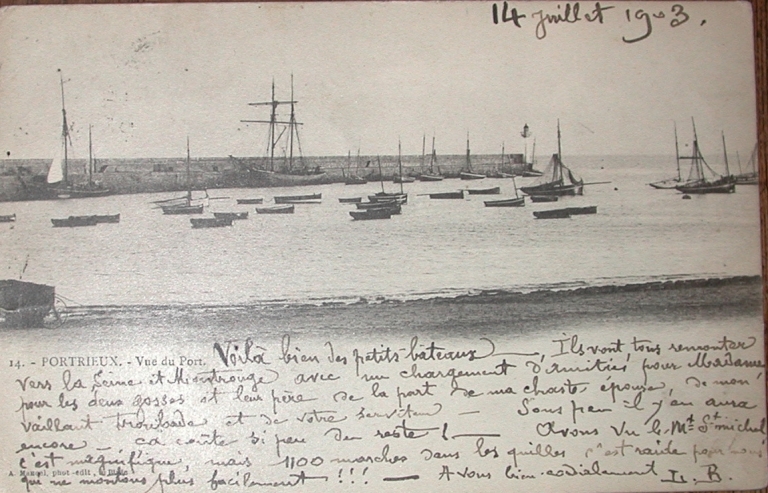 14 juillet 1903.
14. - PORTRIEUX. - Vue du Port. Voilà bien des petits bateaux —, Ils vont tous remonter
vers la Seine et Montrouge avec un chargement d'amitiés pour Madame
pour les deux gosses et leur père de la part de ma chaste épouse, de mon
vaillant troubade et de votre serviteur — Sous peu il y en aura
encore —, ça coûte si peu du reste ! — Avons vu le Mt St Michel
c'est magnifique, mais 1100 marches dans les quilles c'est raide pour nous
A. photo-édit.,
que ne montons plus facilement !!! — A vous bien cordialement L. B.